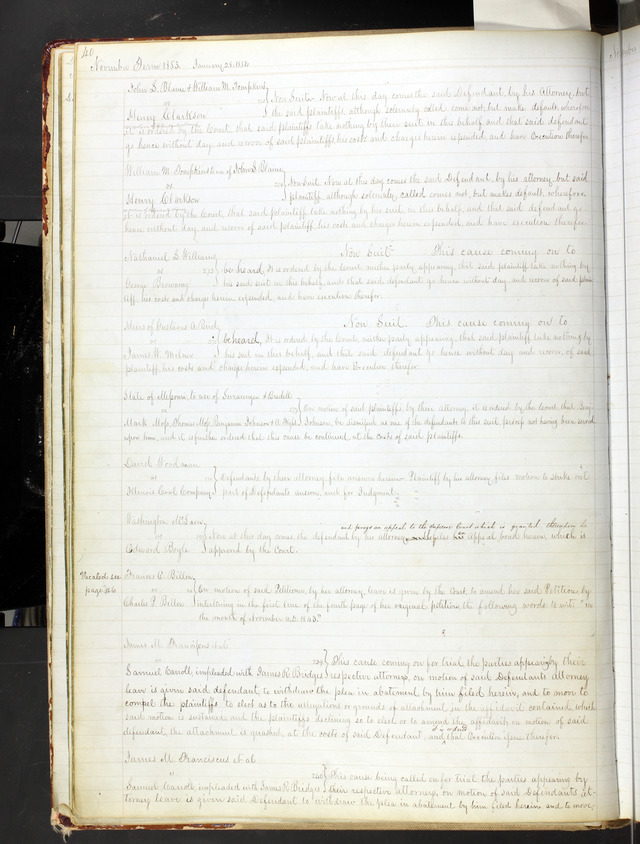 40
November Term 1853. January 28. 1854
John S. Blane & William M. Tompkins
vs Non Suit Now at this day comes the said Defendant, by his Attorney, but
Henry Clarkson the said plaintiffs although solemnly called come not, but make default, wherefore
it is ordered by the Court, that said plaintiffs take nothing by their suit in this behalf, and that said defendant
go hence without day, and recover of said plaintiffs his costs and charges herein expended, and have Execution therefor.
William M. Tompkins use of John S. Blane
vs Non Suit Now at this day comes the said Defendant, by his attorney, but said
Henry Clarkson plaintiff, although solemnly called comes not, but makes default, wherefore
it is ordered by the Court, that said plaintiff take nothing by his suit in this behalf, and that said defendant go
hence without day, and recover of said plaintiff, his costs and charges herein expended, and have execution therefor.
Nathaniel S. Williams Non Suit. This cause coming on to
vs be heard, It is ordered by the Court, neither party appearing, that said plaintiff take nothing by
George his said suit in this behalf, and that said defendant go hence without day and recover of said plain
tiff, his costs and charges herein expended, and have execution therefor.
of Gustavus A. Bird Non Suit. This cause coming on to
vs be heard, It is ordered by the Court, neither party appearing, that said plaintiff take nothing by
James W. his suit in this behalf, and that said defendant go hence without day and recover, of said
plaintiff, his costs and charges herein expended, and have Execution therefor.
State of Missouri to use of &
vs On motion of said plaintiffs, by their attorney, it is ordered by the Court, that Benj.
Mark Moss, Thomas Moss, Benjamin Johnson & Johnson, be dismissed as one of the defendants in this suit, process not having been served
upon him, and it is further ordered that this cause be continued, at the costs of said plaintiffs.
David Woodman
vs Defendants by their attorney, file answer herein. Plaintiff by his attorney files motion to strike out
Illinois Coal Company part of Defendants answer, and for Judgment.
Washington McLean and prays an appeal to the Supreme Court which is granted thereupon he
vs Now at this day comes the defendant by his attorney files appeal bond herein, which is
Edward Boyle approved by the Court.
Vacated see Frances C. Billon
page 46 vs On motion of said Petitioner, by her attorney, leave is given by the Court, to amend her said Petition by
Charles P. Billon interlining in the first line of the fourth page of her original petition, the following words to wit: "in
the month of November A.D. 1843."
James M. Franciscus et al
vs 239 This cause coming on for trial the parties appearing by their
Samuel Caroll, impleaded with James R. Bridges respective attorneys, on motion of said Defendants Attorney
leave is given said defendant, to withdraw the plea in abatement by him filed herein, and to move to
compel the plaintiffs to elect as to the allegations or grounds of attachment in the affidavit contained which
said motion is sustained, and the plaintiffs declining so to elect or to amend the affidavit, on motion of said
defendant, the attachment is quashed, at the costs of said Defendant, and that Execution issue therefor.
James M. Franciscus et al
vs 240 This cause being called on for trial the parties appearing by
Samuel Caroll, impleaded with James R. Bridges their respective attorneys, on motion of said Defendants, at-
torney leave is given said Defendant to withdraw the plea in abatement by him filed herein and to move,